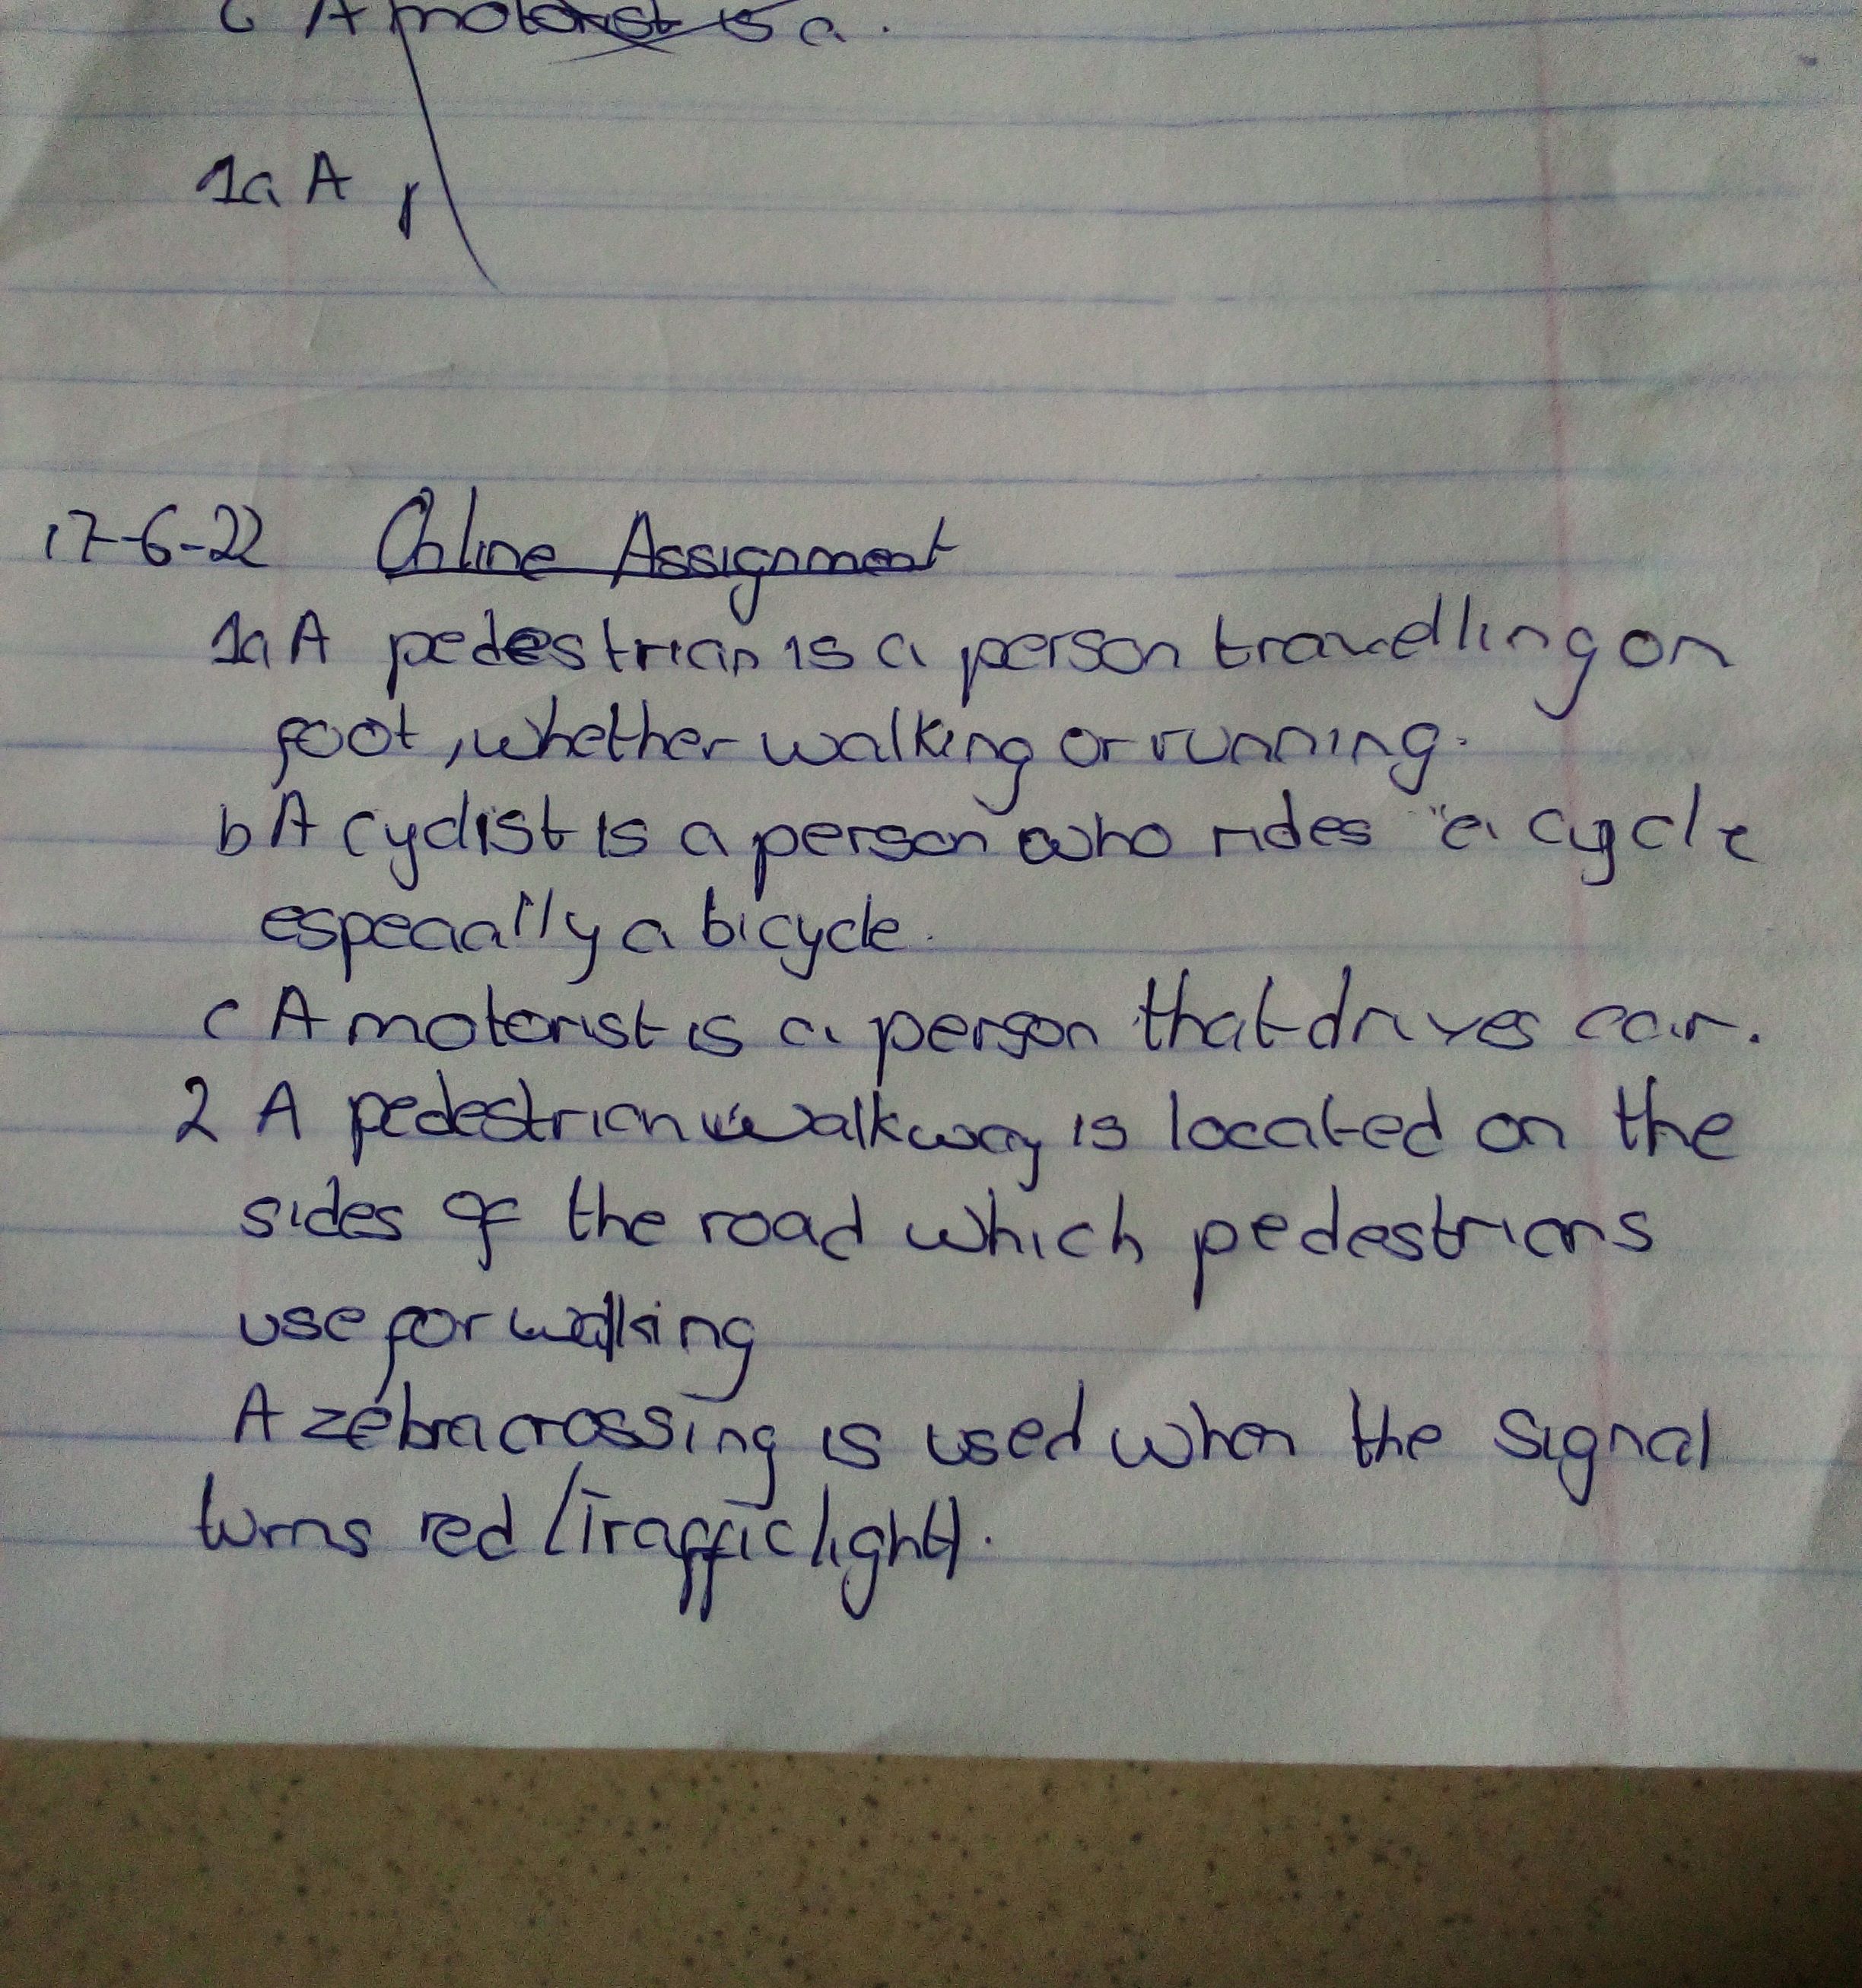 c A motorist is a.
1a A
17-6-22 Online Assignment
1a A pedestrian is a person travelling on
foot, whether walking or running.
b A cyclist is a person who rides a cycle
especially a bicycle.
c A motorist is a person that drives car.
2 A pedestrian walkway is located on the
sides of the road which pedestrians
use for walking
A zebra crossing is used when the signal
turns red (Traffic light).